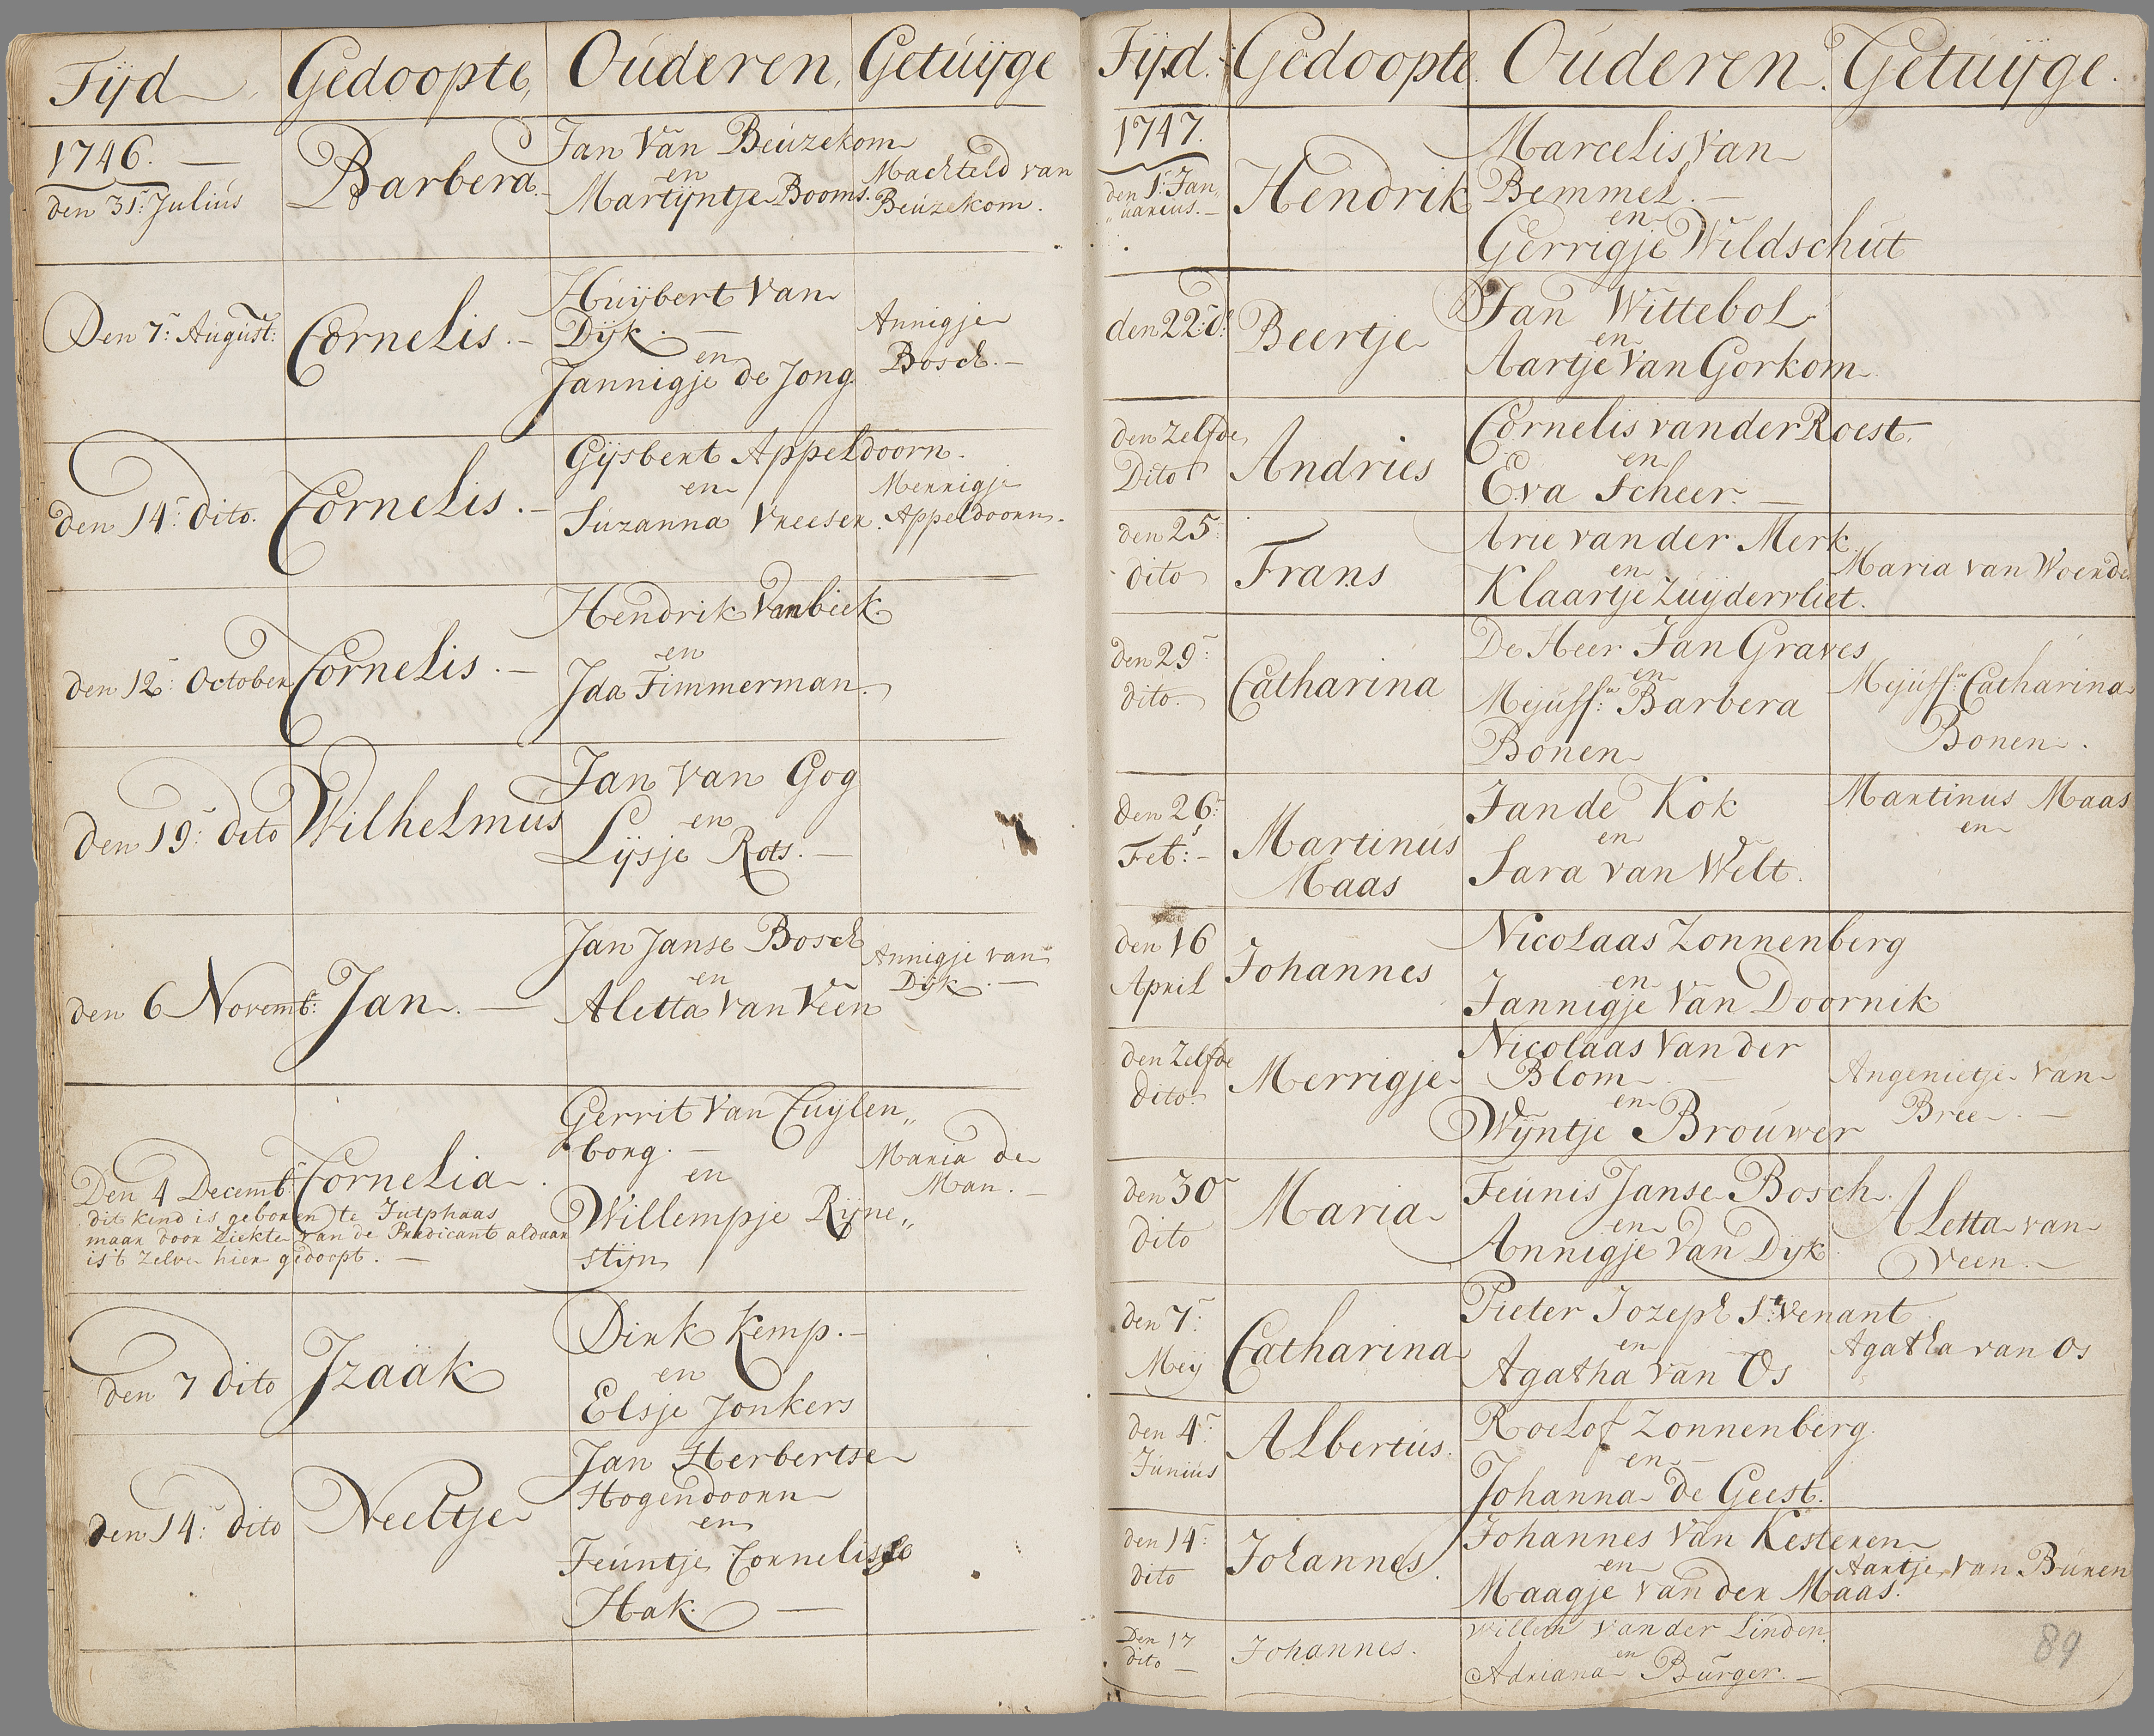 Tijd Gedoopte, Ouderen, Getuijge
1746. —
den 31: Julius
Barbera.
Jan Van Beuzekom
en
Martijntje Booms.
Machteld van
Beuzekom.
Den 7: August:
Cornelis. —
Huijbert Van
Dijk. —
en
Jannigje de Jong
Annigje
Bosch. —
den 14: dito.
Cornelis. —
Gijsbert Appeldoorn.
en
Suzanna Vreesen.
Mennigje
Appeldoorn.
den 12: October
Cornelis. —
Hendrik Van biek
en
Ida Timmerman.
den 19: dito
Wilhelmus
Jan Van Gog
en
Lijsje Rots. —
den 6 Novemb:
Jan. —
Jan Janse Bosch
en
Aletta Van Veen
Annigje van
Dijk. —
Den 4 Decemb:
Cornelia.
dit kind is geboren te Jutphaas
maar door Ziekte van de Predicant aldaar
is't zelve hier gedoopt. —
Gerrit Van Cuijlen„
borg. —
en
Willempje Rijne„
stijn
Maria de
Man. —
den 7 dito
Izaäk
Dirk Kemp. —
en
Elsje Jonkers
den 14: dito
Neeltje
Jan Herbertse
Hogendoorn
en
Teuntje Cornelisse
Hak. —
Tijd. Gedoopte. Ouderen. Getuijge.
1747.
den 1: Jan„
„uarius. —
Hendrik
Marcelis Van
Bemmel. —
en
Gerrigje Wildschut
den 22: d:
Beertje
Jan Wittebol
en
Aartje Van Gorkom
den Zelfde
Dito
Andries
Cornelis van der Roest.
en
Eva Scheer. —
den 25:
dito
Frans
Arie van der Merk
en
Klaartje Zuijdervliet.
Maria van Woerde
den 29:
dito.
Catharina
De Heer Jan Graves
en
Mejuff:w Barbera
Bonen
Mejuff:w Catharina
Bonen.
den 26:
Feb: —
Martinus
Maas
Jan de Kok
en
Sara van Welt.
Martinus Maas
en
den 16
April
Johannes
Nicolaas Zonnenberg
en
Jannigje Van Doornik
den Zelfde
dito:
Merrigje
Nicolaas Van der
Blom
en
Wijntje Brouwer
Angenietje Van
Bree. —
den 30
dito
Maria
Teunis Janse Bosch.
en
Annigje Van Dijk
Aletta van
Veen. —
den 7:
Meij
Catharina
Pieter Jozeph St: Venant
en
Agatha Van Os
Agatha van Os
den 4:
Junius
Albertus.
Roelof Zonnenberg
en
Johanna de Geest.
den 14:
dito
Johannes.
Johannes Van Kesteren
en
Maagje Van der Maas.
Aartje Van Buren
Den 17
dito —
Johannes.
Willem Van der Linden.
en
Adriana Burger. —
89